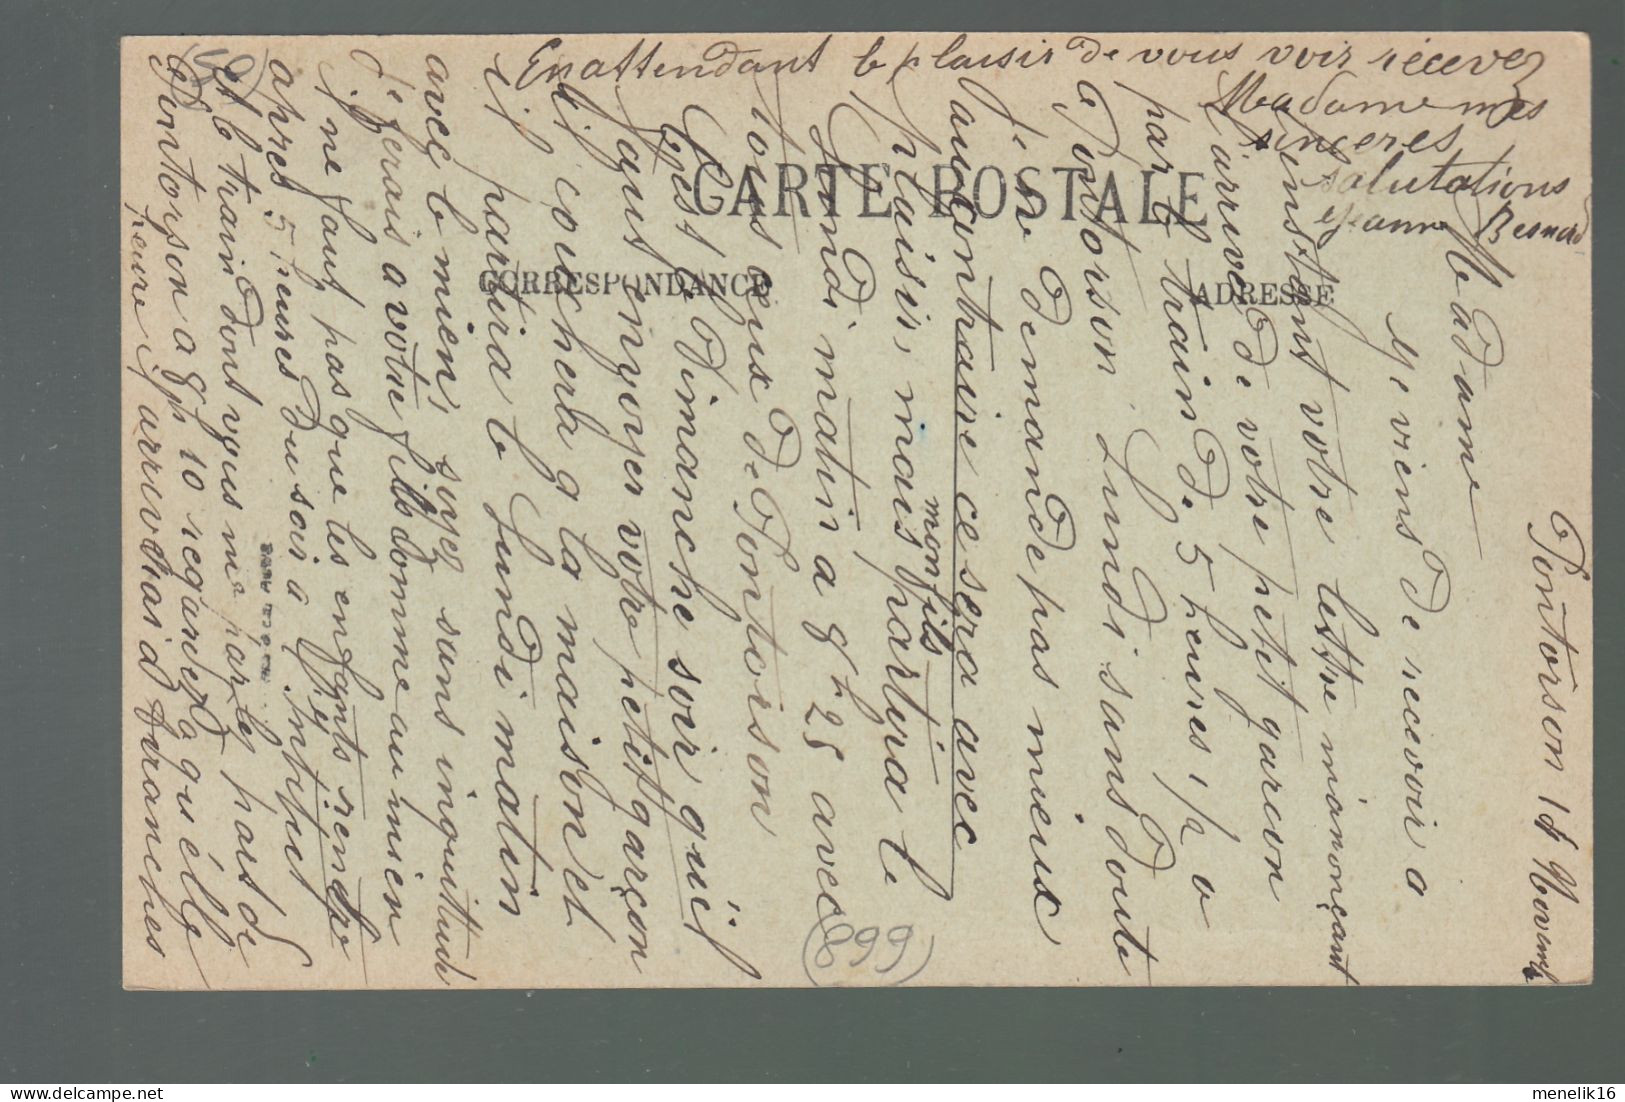 CARTE POSTALE
CORRESPONDANCE
ADRESSE
Pontorson 18 Novemb
Madame
Je viens de recevoir a
l'instant votre lettre m'anonçant
l'arrivé de votre petit garcon
par le train de 5 heures 1/2 a
Pontorson Lundi sans doute
je ne demande pas mieux
aucontraire ce sera avec
plaisir, mais mon fils partira le
Lundi matin a 8h 25 avec
tous ceux de Pontorson
C'est Dimanche soir qu'il
faut envoyer votre petit garçon
il couchera a la maison et
il partira le Lundi matin
avec le mien, soyez sans inquiettude
je ferais a votre fils comme au mien
il ne faut pas que les enfants rentre
apres 5 heures du soir a Intitut
et le train dont vous me parlez part de
Pontorson a 8h 10 regardez a qu'elle
heure il arriverais d Avranches
En attendant le plaisir de vous voir recevez
Madame mes
sinceres
salutations
Jeanne Besnard
899
menelik16